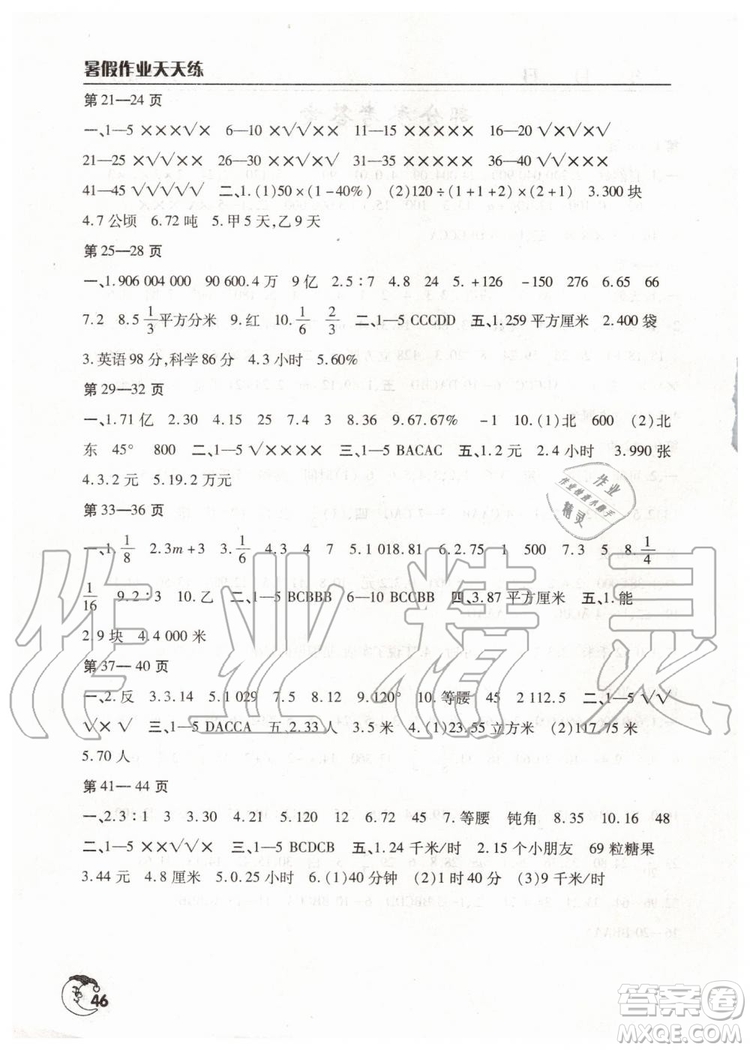 暑假作业天天练
第21—24页
一、1—5 ×××√× 6—10 ×√√×√ 11—15 ××××× 16—20 ×√√√×
21—25 ××××√ 26—30 √×××× 31—35 ××××× 36—40 ×√×√√
41—45 √√√√√ 二、1.(1)50×(1-40%) (2)120÷(1+1+2)×(2+1) 3.300块
4.7公顷 6.72吨 5.甲5天,乙9天
第25—28页
一、1.906 004 000 90 600.4万 9亿 2.5∶7 4.8 24 5.+126 -150 276 6.65 66
7.2 8.5 1/3平方分米 9.红 10.1/6 2/3 二、1—5 CCCDD 五、1.259平方厘米 2.400袋
3.英语98分,科学86分 4.3小时 5.60%
第29—32页
一、1.71亿 2.30 4.15 25 7.4 3 8.36 9.67.67% -1 10.(1)北 600 (2)北
东 45° 800 二、1—5 √×××× 三、1—5 BACAC 五、1.2元 2.4小时 3.990张
4.3.2元 5.19.2万元
第33—36页
一、1.1/8 2.3m+3 3.1/6 4.35 7 5.1 018.81 6.2.75 1 500 7.3 5 8.1/4
1/16 9.2∶3 10.乙 二、1—5 BCBBB 6—10 BBCCB 四、3.87平方厘米 五、1.能
2.9块 4.4 000米
第37—40页
一、2.反 3.3.14 5.1 029 7.5 8.12 9.120° 10.等腰 45 2 112.5 二、1—5 √×√√
√×√× 三、1—5 DACCA 五、2.33人 3.5米 4.(1)23.55立方米 (2)117.75米
5.70人
第41—44页
一、2.3∶1 3 3.30 4.150 5.120 12 6.72 45 7.等腰 钝角 8.35 10.16 48
二、1—5 ××√√× 三、1—5 BCDCB 五、1.24千米/时 2.15个小朋友 69粒糖果
3.44元 4.8厘米 5.0.24小时 6.(1)40分钟 (2)3千米 (3)9千米/时
46
作业精灵
作业
精灵
答案圈
MXQE.COM